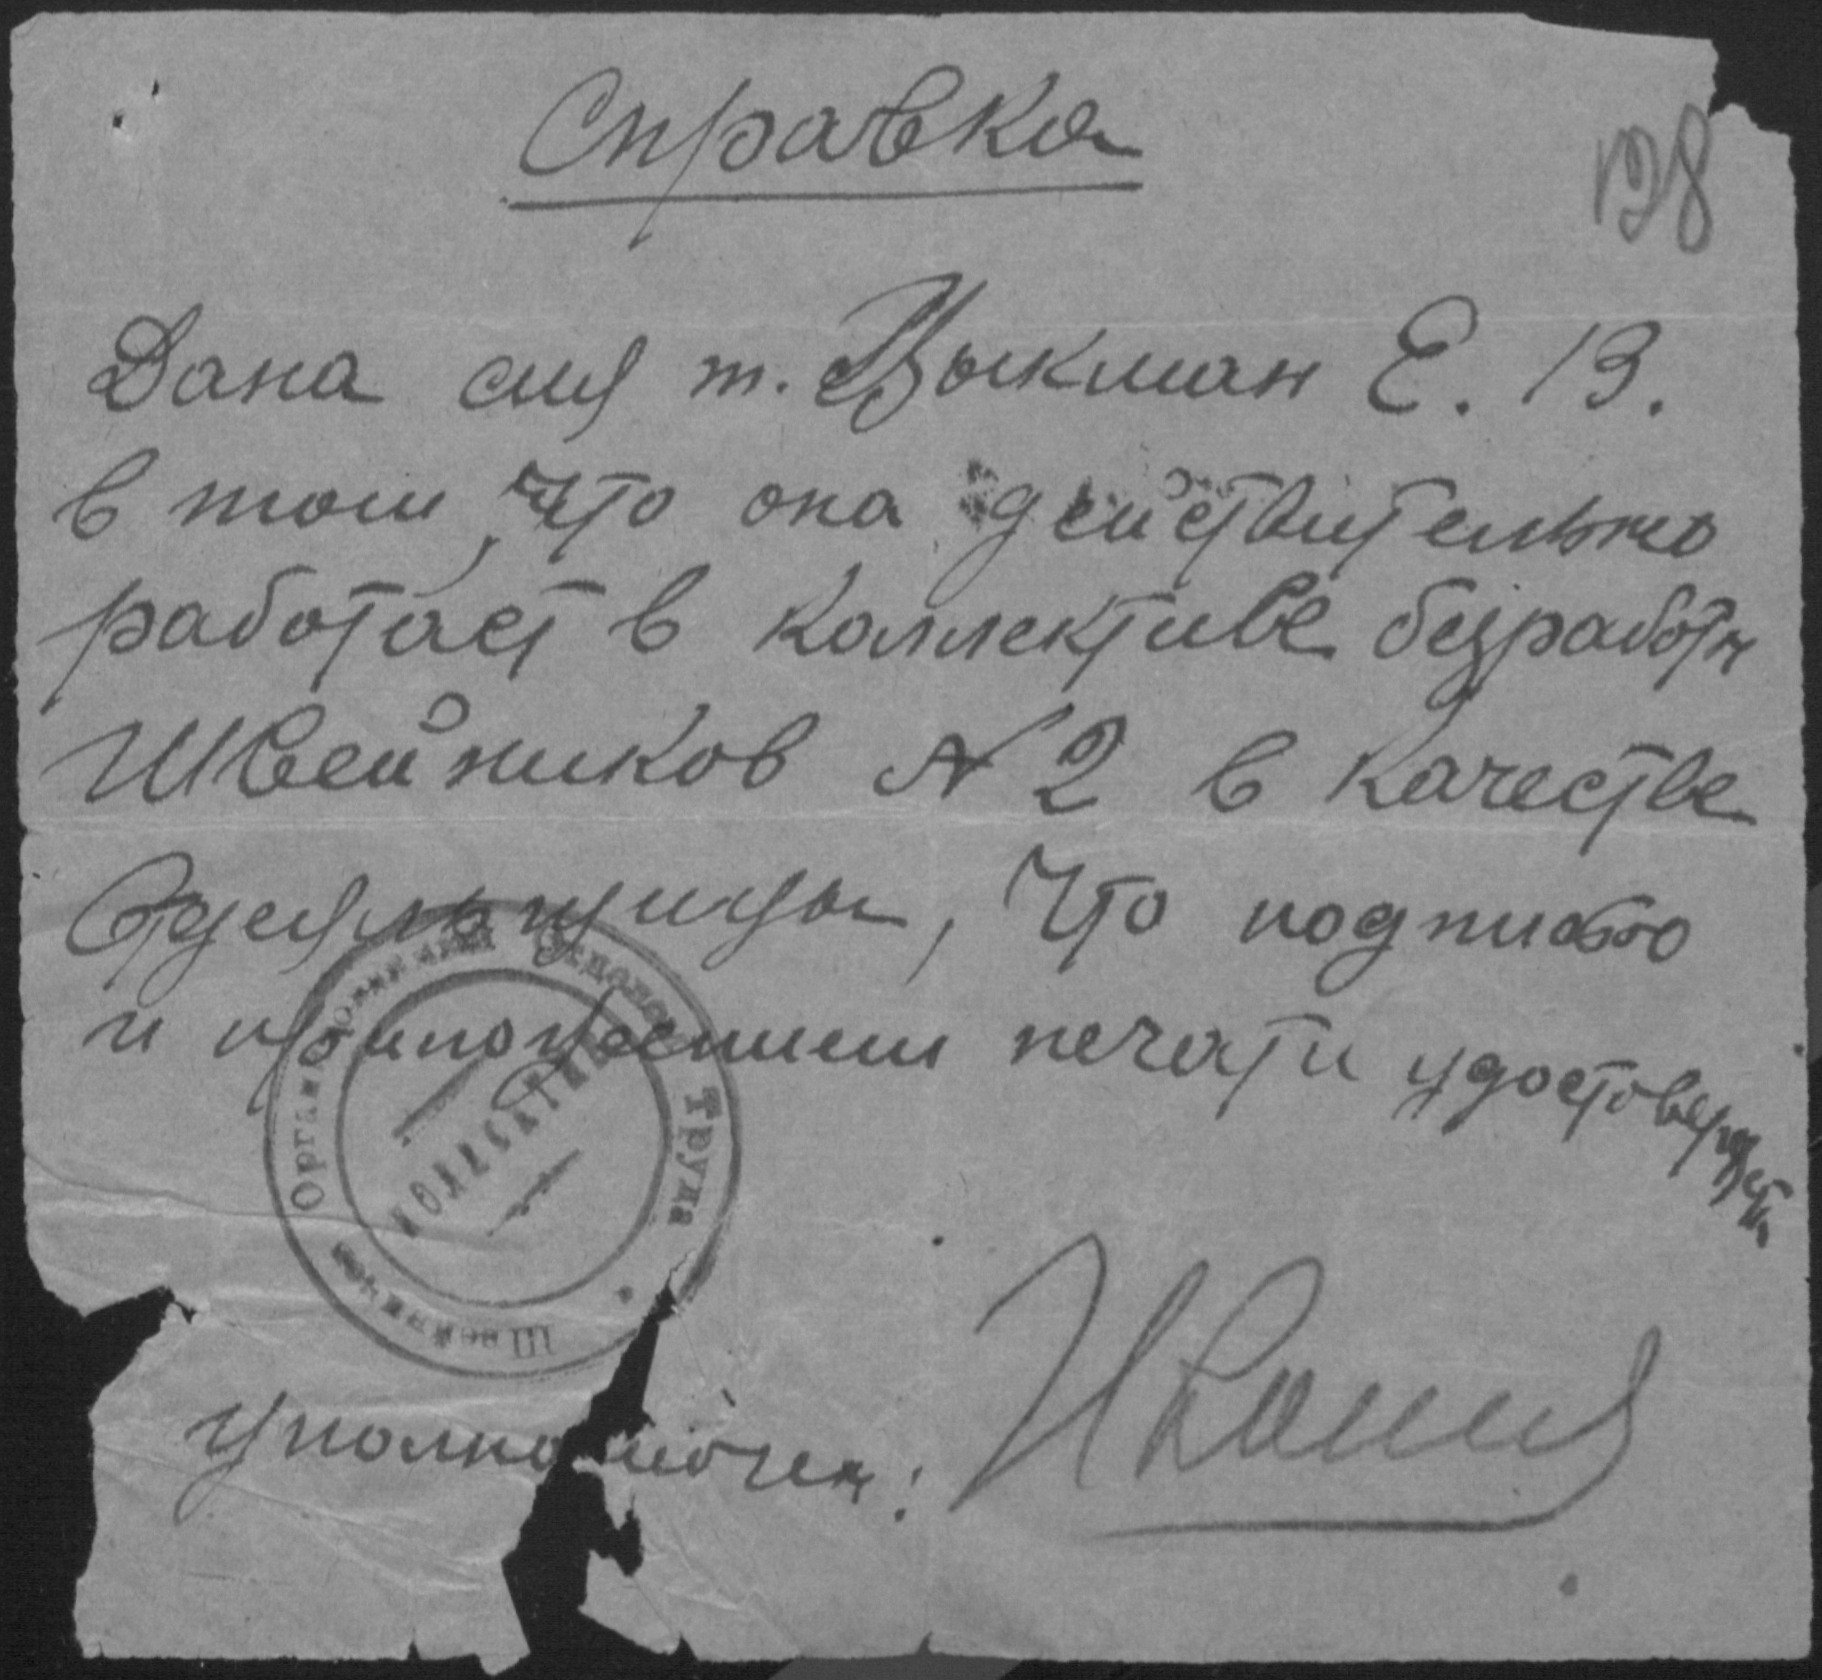 Справка
128
Дана сия т. Цыкман Е. В.
в том, что она действительно
работает в коллективе безработн
Швейников № 2 в качестве
Сдельщицы, что подписью
и приложением печати удостоверяется.
Организованный Труда
Швейников
КОЛЛЕКТИВ
уполномочен: